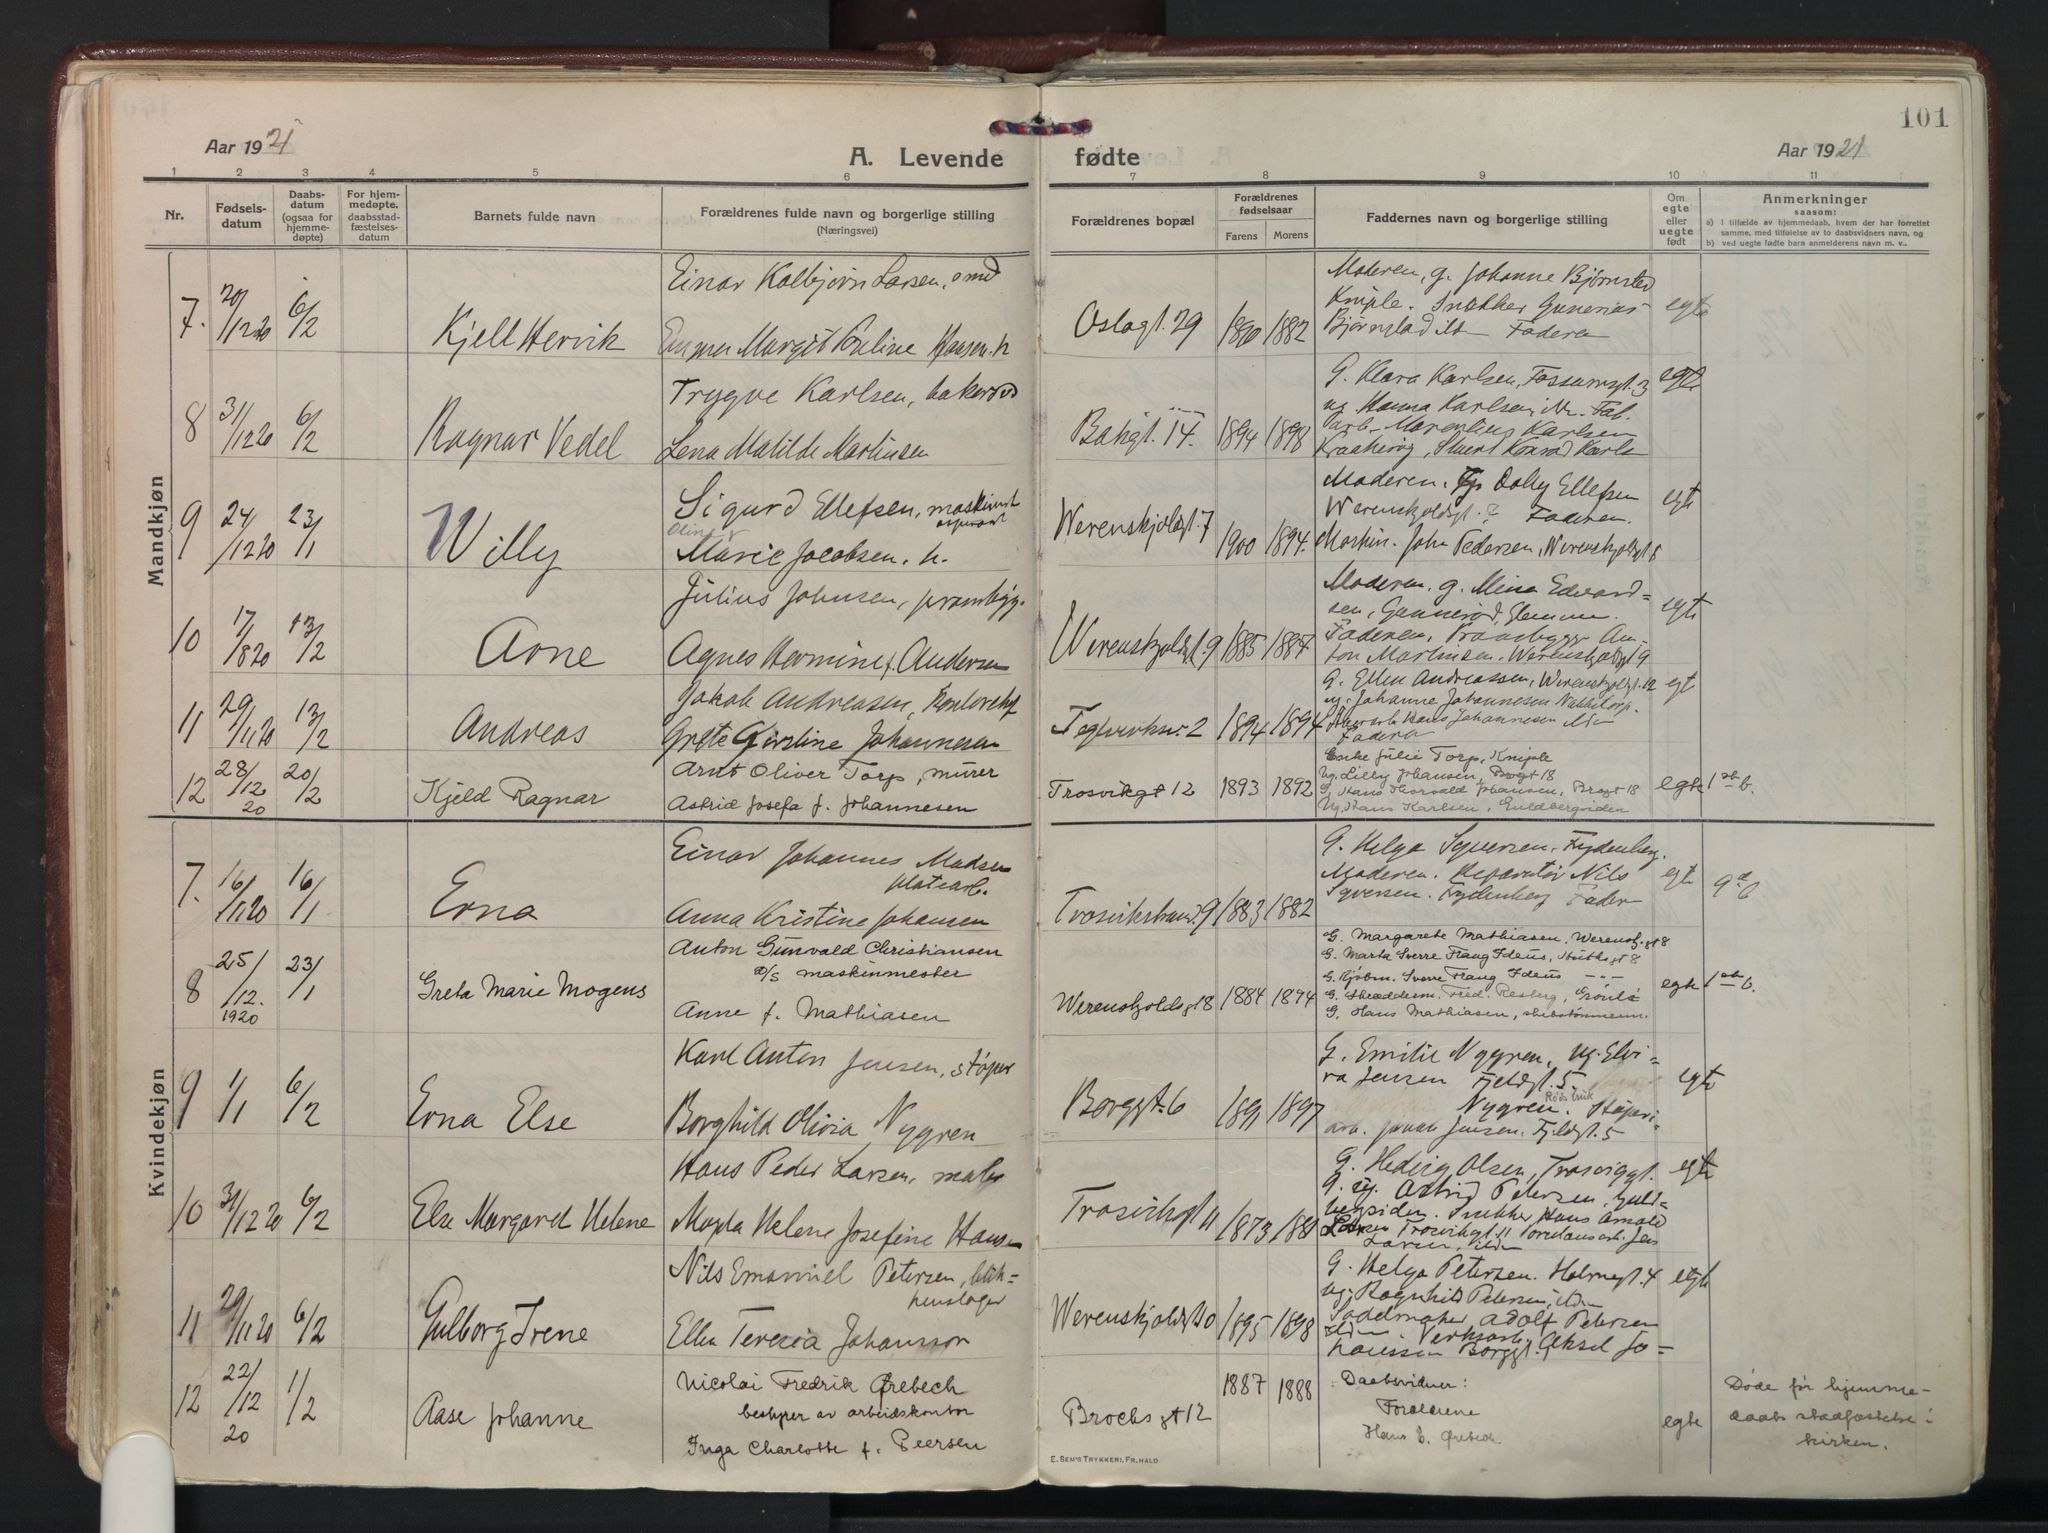 101
Aar 1921
A. Levende fødte
Aar 1921
1 2 3 4 5 6 7 8 9 10 11
Nr.
Fødsels-
datum
Daabs-
datum
(ogsaa for
hjemme-
døpte)
For hjem-
medøpte.
daabsstad-
fæstelses-
datum
Barnets fulde navn
Forældrenes fulde navn og borgerlige stilling
(Næringsvei)
Forældrenes bopæl
Forældrenes
fødselsaar
Farens Morens
Faddernes navn og borgerlige stilling
Om
egte
eller
uegte
født
Anmerkninger
saasom:
a) I tilfælde av hjemmedaab, hvem der har forrettet
samme, med tilføielse av to daabsvidners navn, og
b) ved uegte fødte barn anmelderens navn m. v..
Mandkjøn
7. 20/12 20 6/2 Kjell Hervik
Einar Kolbjørn Larsen, smed
Emma Margit Pauline Hansen. h
Oslogt. 79 1890 1882
Moderen, g. Johanne Bjørnstad
Kniple. Snekker Gunerius
Bjørnstad ibd Faderen
egte
8 31/12 20 6/2 Ragnar Vedel
Trygve Karlsen, bakersvd
Lena Matilde Martinsen
Bakgt. 14. 1894 1898
G. Klara Karlsen, Fossumsgt. 3
ug Hanna Karlsen, Fab.
arb. Marentius Karlsen
Kraakerøy, Konrad Karls
egte
9 24/12 20 23/1 Willy
Sigurd Ellefsen, maskinist
aspirant
Marie Jacobsen. h.
Werenskjoldgt. 7 1900 1894.
Moderen. Dolly Ellefsen
Werenskjoldsgt. 7 Faderen.
Maskin. John Pedersen, Werenskjoldgt 8
egte
10 17/8 20 13/2 Arne
Julius Johnsen, prambygg.
Agnes Hermine f. Andersen
Werenskjoldgt. 9 1885 1887.
Moderen, g. Mina Edvard=
sen, Gunnerød, Glemmen.
Faderen, Prambygger An-
ton Martinsen. Werenskjoldgt 9
egte
11 29/11 20 13/2 Andreas
Jakob Andreasen, Kontorchf
Grete Kirstine Johannesen
Teglverksv. 2 1894 1894
G. Ellen Andreassen, Werenskjoldgt. 12
ug. Johanne Johannesen Nabbetorp.
Hans Johannesen
Faderen
egt
12 28/12 20 20/2 Kjeld Ragnar
Arnt Oliver Torp, murer
Astrid Josefa f. Johannesen
Trosvikgt 12 1893 1892
Enke Julie Torp, Kniple
Ug. Lilly Johansen, Brogt 18
G. Hans Thorvald Johansen, Brogt 18
Ug. Hans Karlsen, Guldbergsiden
egte 1ste b.
Kvindekjøn
7. 16/11 20 16/1 Erna
Einar Johannes Madsen
platearb.
Anna Kristine Johansen
Trosvikstrand. 9 1883 1882
G. Helga Syversen, Frydenberg.
Moderen. Reparatør Nils
Syversen. Frydenberg Fader
egt 9de b
8 25/12. 1920 23/1 Greta Marie Mogens
Anton Gunvald Christiansen
D/S maskinmester
Anne f. Mathiasen
Werenskjoldsgt 18 1884 1894
G. Margarete Mathiasen, Werensk.gt 8
G. Marta Sverre Frang Ideus, Stuttsgt 8
G. Kjøbm. Sverre Frang Ideus -,,-
G. Skreddem. Fred. Resberg, Grönli
G. Hans Mathiasen, skibstømmerm.
egte 1ste b.
9 1/1 6/2 Erna Else
Karl Anton Jensen, støper
Borghild Olivia Nygren
Borggt. 6 1891 1897
G. Emilie Nygren, ug. Elvi-
ra Jensen Fjeldgt. 5
Nygren. Støperi-
arb. Johan Jensen. Fjeldgt. 5
egte
10 31/12 20 6/2 Else Margaret Helene
Hans Peder Larsen, maler
Magda Helene Josefine Hansen
Trosvikgt 11 1873 1881
G. Hedvig Olsen, Trosviggt.
ug. Astrid Petersen, Guld-
bergsiden. Snekker Hans Arnold
Larsen Trosvikgt. 11 Porselænsarb. Jens
Larsen, ibdm
egte
11 29/11 20 6/2 Gulborg Irene
Nils Emanuel Petersen, blik=
kenslager
Ellen Teresia Johansson
Werenskjoldgt 10 1895 1898
G. Helga Petersen. Holmegt. 4
ug. Ragnhild Petersen, ibdm
Sadelmaker Adolf Petersen
ibdm. Verksarb. Aksel Jo=
hanssen Borggt.
egte
12 22/12 20 1/2 Aase Johanne
Nicolai Fredrik Ørebech
bestyrer av arbeidskontor
Inga Charlotte f. Peersen
Brochs gt 12 1887 1888
Daabsvidner:
Forældrene
Hans E. Ørebech
egte
Døde før hjemme-
daabs stadfæstelse i
kirken.
E. SEM'S TRYKKERI, FR.HALD